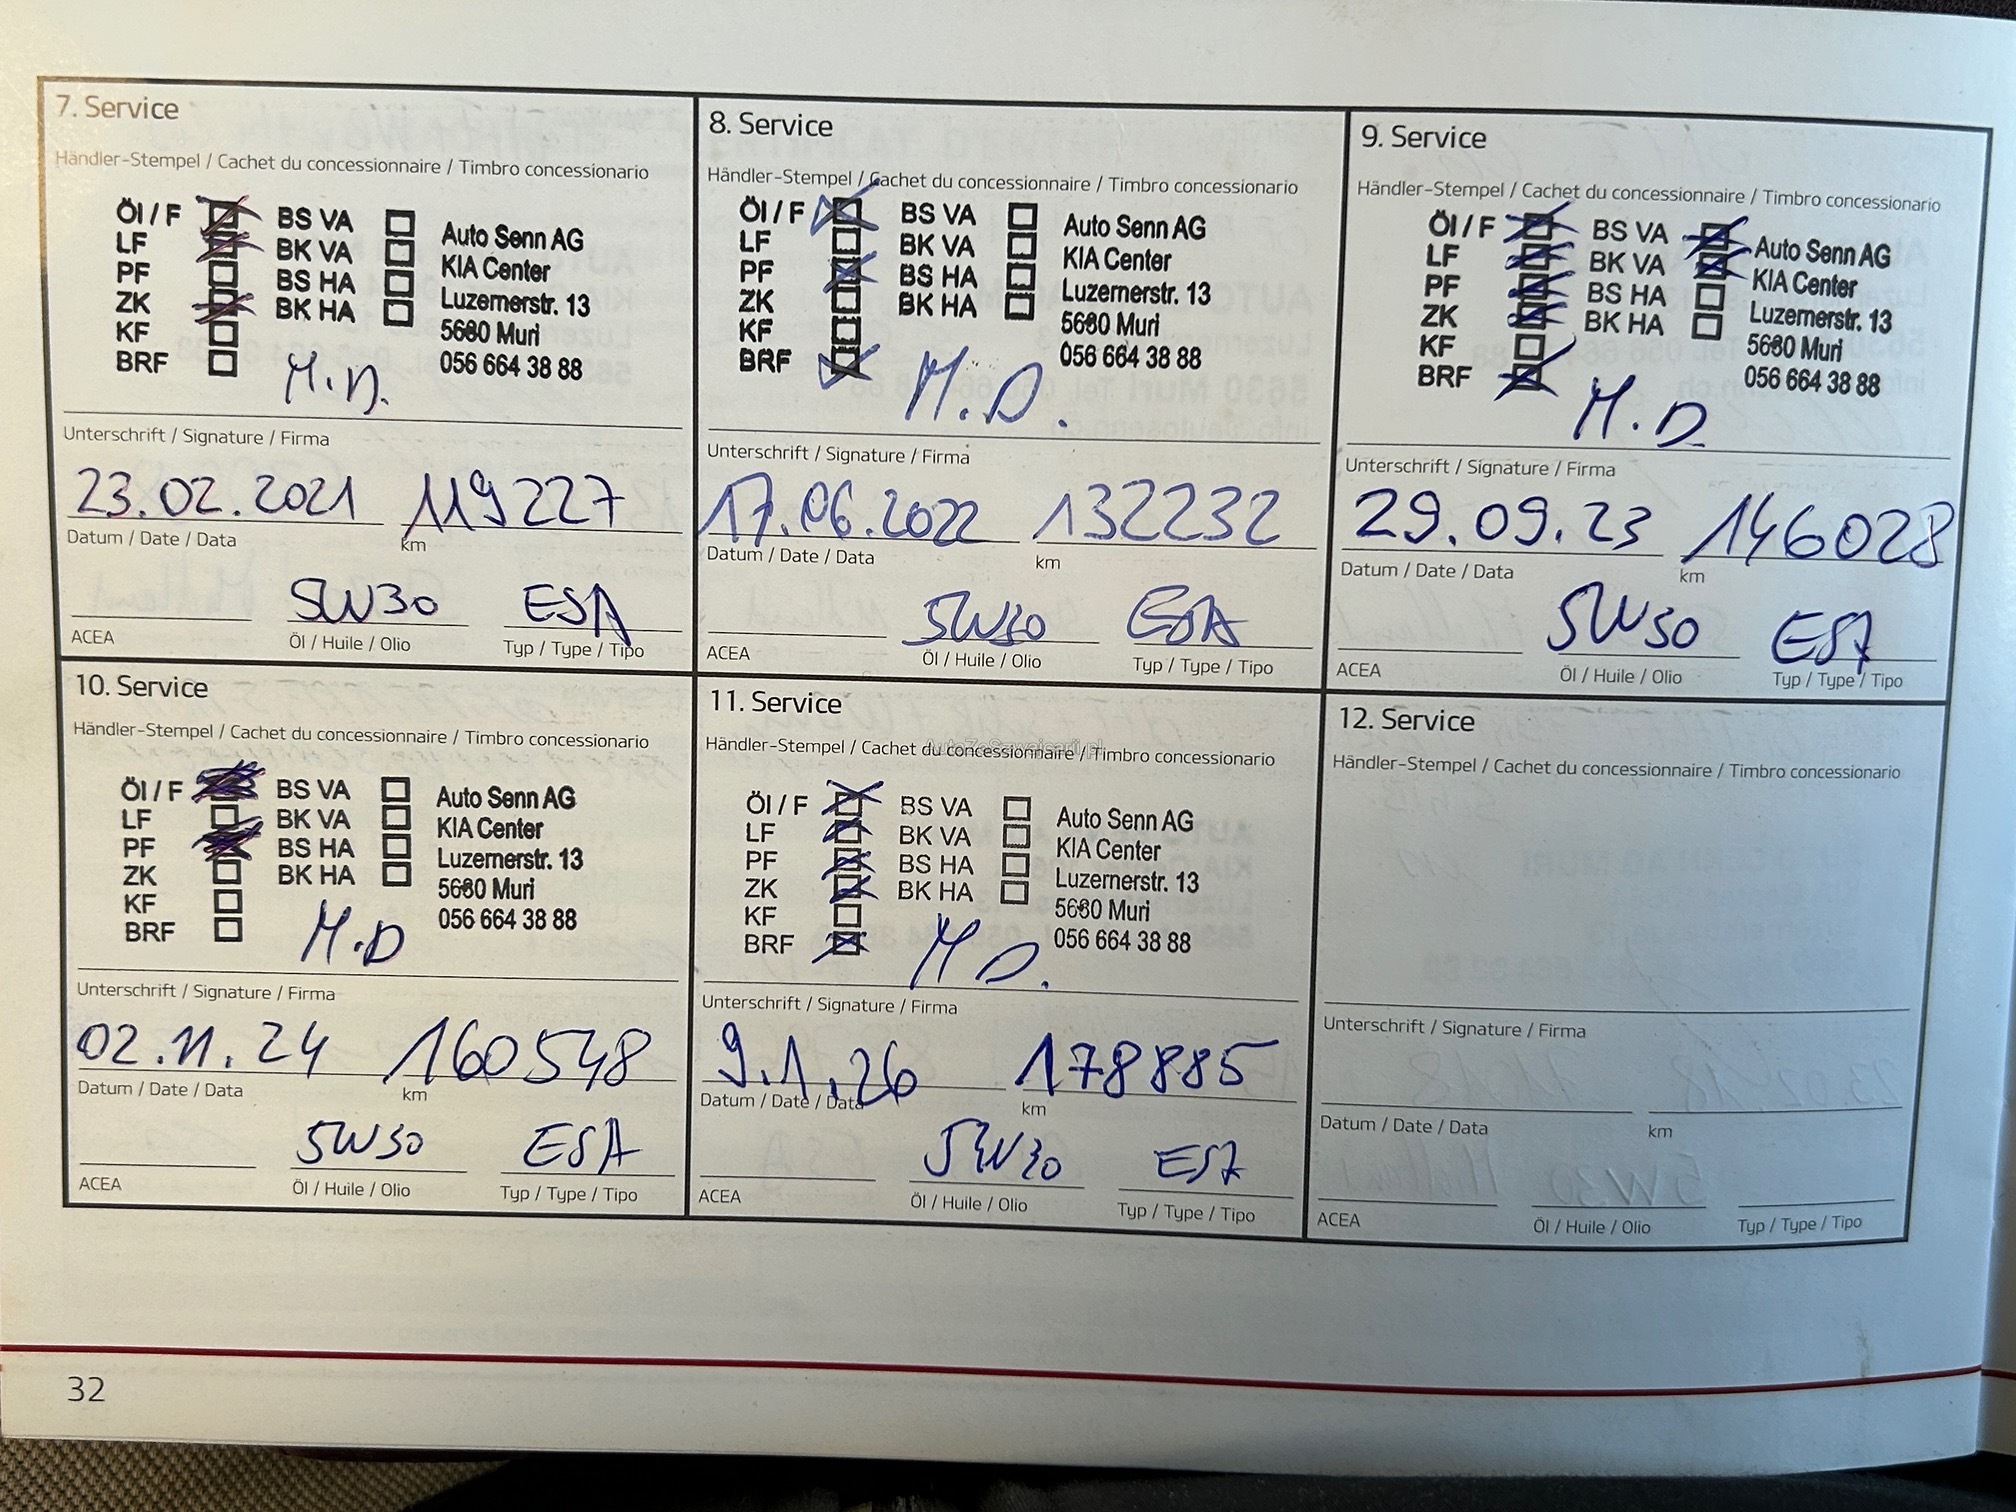 7. Service
Händler-Stempel / Cachet du concessionnaire / Timbro concessionario
Öl / F BS VA
LF BK VA Auto Senn AG
PF BS HA KIA Center
ZK BK HA Luzernerstr. 13
KF 5630 Muri
BRF 056 664 38 88
M.D.
Unterschrift / Signature / Firma
23.02.2021 119227
Datum / Date / Data km
5W30 ESA
ACEA Öl / Huile / Olio Typ / Type / Tipo
8. Service
Händler-Stempel / Cachet du concessionnaire / Timbro concessionario
Öl / F BS VA Auto Senn AG
LF BK VA KIA Center
PF BS HA Luzernerstr. 13
ZK BK HA 5630 Muri
KF 056 664 38 88
BRF
M.D.
Unterschrift / Signature / Firma
17.06.2022 132232
Datum / Date / Data km
5W30 ESA
ACEA Öl / Huile / Olio Typ / Type / Tipo
9. Service
Händler-Stempel / Cachet du concessionnaire / Timbro concessionario
Öl / F BS VA Auto Senn AG
LF BK VA KIA Center
PF BS HA Luzernerstr. 13
ZK BK HA 5630 Muri
KF 056 664 38 88
BRF
M.D.
Unterschrift / Signature / Firma
29.09.23 146028
Datum / Date / Data km
5W30 ESA
ACEA Öl / Huile / Olio Typ / Type / Tipo
10. Service
Händler-Stempel / Cachet du concessionnaire / Timbro concessionario
Öl / F BS VA Auto Senn AG
LF BK VA KIA Center
PF BS HA Luzernerstr. 13
ZK BK HA 5630 Muri
KF 056 664 38 88
BRF
M.D
Unterschrift / Signature / Firma
02.11.24 160548
Datum / Date / Data km
5W30 ESA
ACEA Öl / Huile / Olio Typ / Type / Tipo
11. Service
Händler-Stempel / Cachet du concessionnaire / Timbro concessionario
Öl / F BS VA Auto Senn AG
LF BK VA KIA Center
PF BS HA Luzernerstr. 13
ZK BK HA 5630 Muri
KF 056 664 38 88
BRF
M D.
Unterschrift / Signature / Firma
9.1.26 178885
Datum / Date / Data km
5W30 ESA
ACEA Öl / Huile / Olio Typ / Type / Tipo
12. Service
Händler-Stempel / Cachet du concessionnaire / Timbro concessionario
Unterschrift / Signature / Firma
Datum / Date / Data km
ACEA Öl / Huile / Olio Typ / Type / Tipo
32